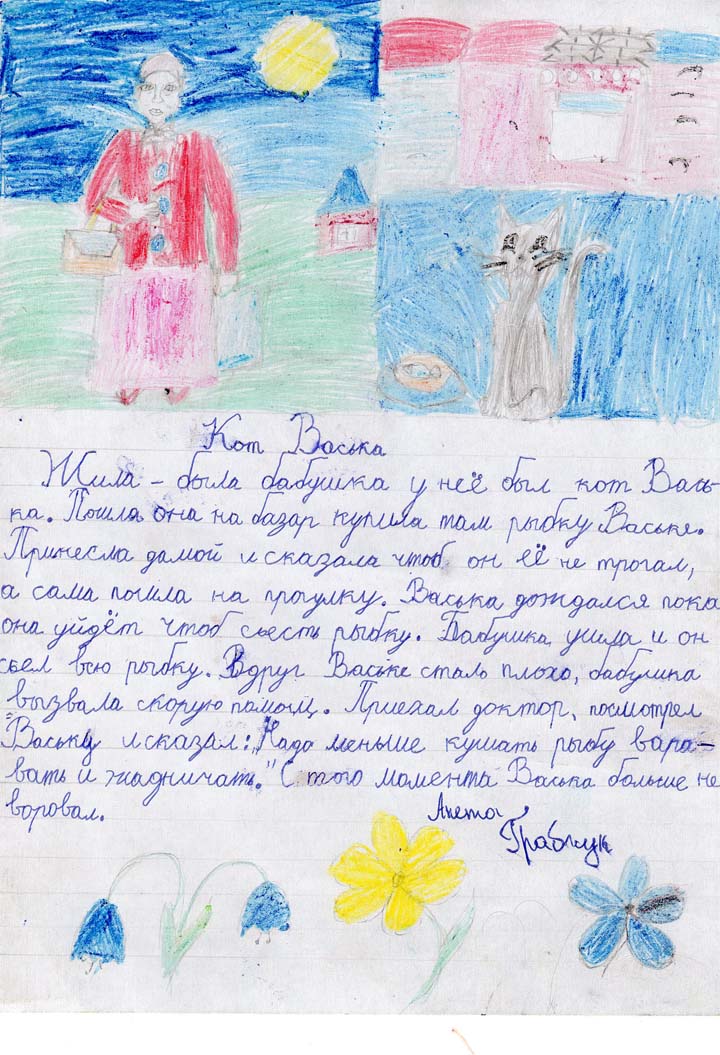 Кот Васька
Жила - была бабушка у неё был кот Вась-
ка. Пошла она на базар купила там рыбку Ваське.
Принесла домой и сказала чтоб он её не трогал,
а сама пошла на прогулку. Васька дождался пока
она уйдёт чтоб сьесть рыбку. Бабушка ушла и он
сьел всю рыбку. Вдруг Ваське стало плохо, бабушка
вызвала скорую помощ. Приехал доктор, посмотрел
Ваську и сказал: "Надо меньше кушать рыбу вара-
вать и жадничать." С того момента Васька больше не
воровал.
Анета
Грабчук